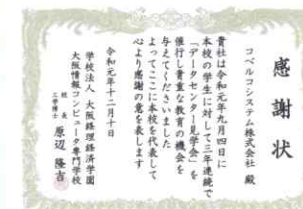 感謝状
コベルコシステム株式会社 殿
貴社は令和元年九月四日に
本校の学生に対して三年連続で
「データセンター見学会」を
催行し貴重な教育の機会を
与えてくださいました
よってここに本校を代表して
心より感謝の意を表します
令和元年十二月十日
学校法人 大阪経理経済学園
大阪情報コンピュータ専門学校
校長
工学博士 原辺 隆吉